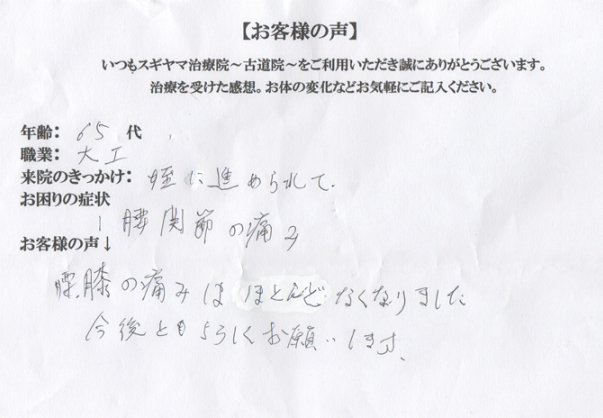 【お客様の声】
いつもスギヤマ治療院～古道院～をご利用いただき誠にありがとうございます。
治療を受けた感想。お体の変化などお気軽にご記入ください。
年齢： 65 代
職業： 大工
来院のきっかけ： 姪に進められて
お困りの症状
↓ 腰関節の痛み
お客様の声↓
腰膝の痛みは ほとんど なくなりました
今後ともよろしくお願いします。